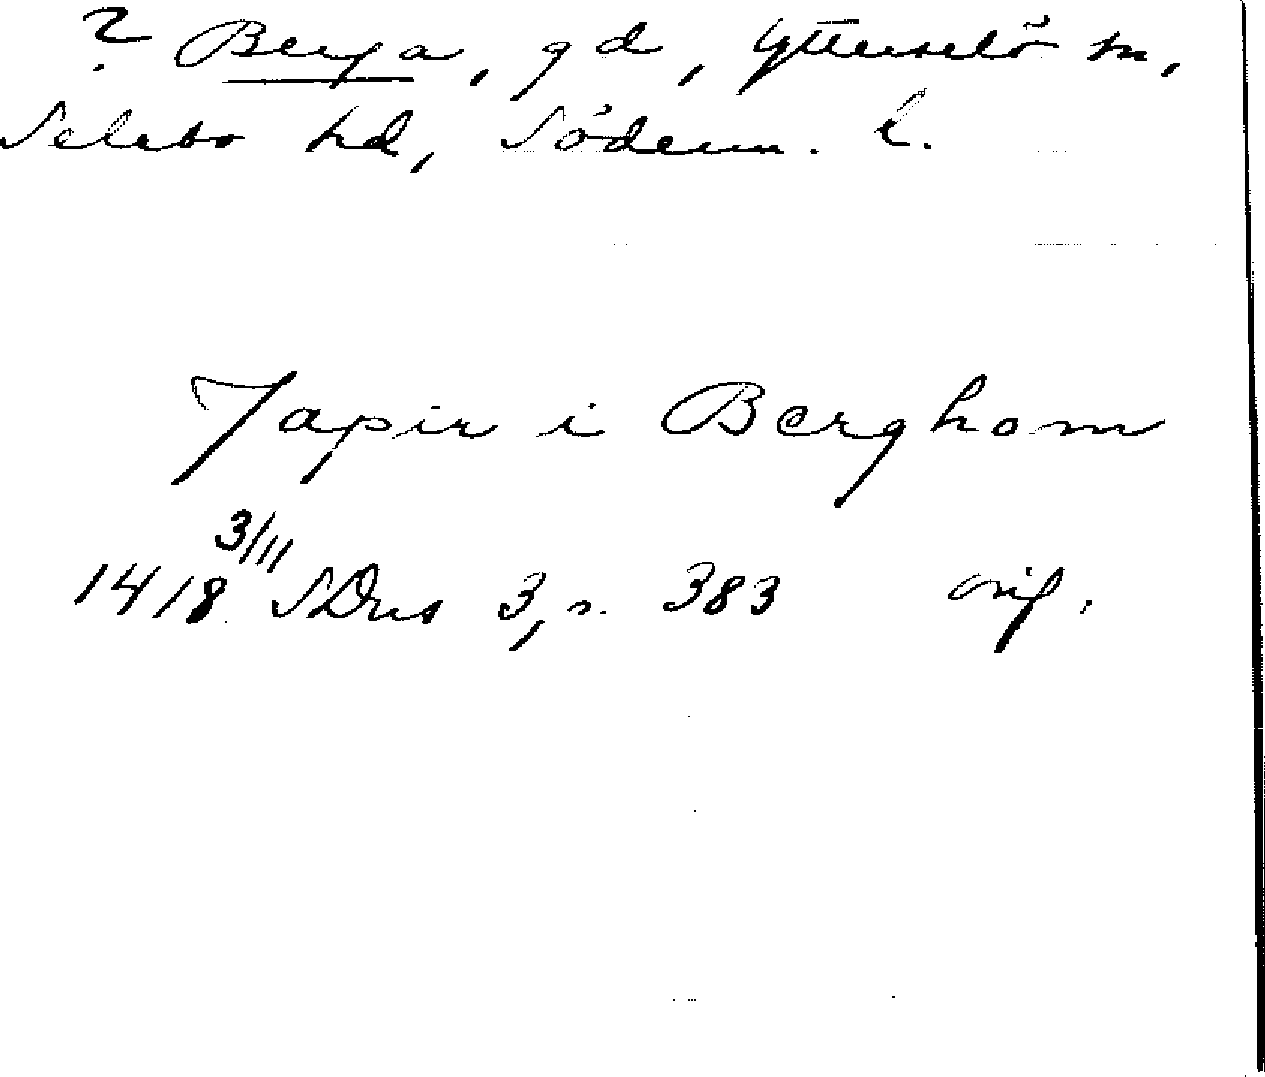 ? Berga, gd, Ytterselö sn,
Selebo hd, Söderm. l.
Japir i Berghom
3/11
1418 SDns 3, s. 383 orig.